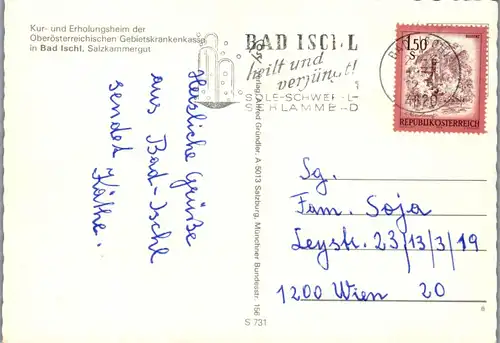 Kur- und Erholungsheim der
Oberösterreichischen Gebietskrankenkasse
in Bad Ischl, Salzkammergut
BAD ISCHL
heilt und
verjüngt!
SOLE-SCHWEFEL
SCHLAMMBAD
4820
1.50
S
REPUBLIK ÖSTERREICH
Herzliche Grüße
aus Bad-Ischl
sendet
Käthe.
Verlag Alfred Gründler, A 5013 Salzburg, Münchner Bundesstr. 156
S 731
Sg.
Fam. Soja
Leystr. 23/13/3/19
1200 Wien 20